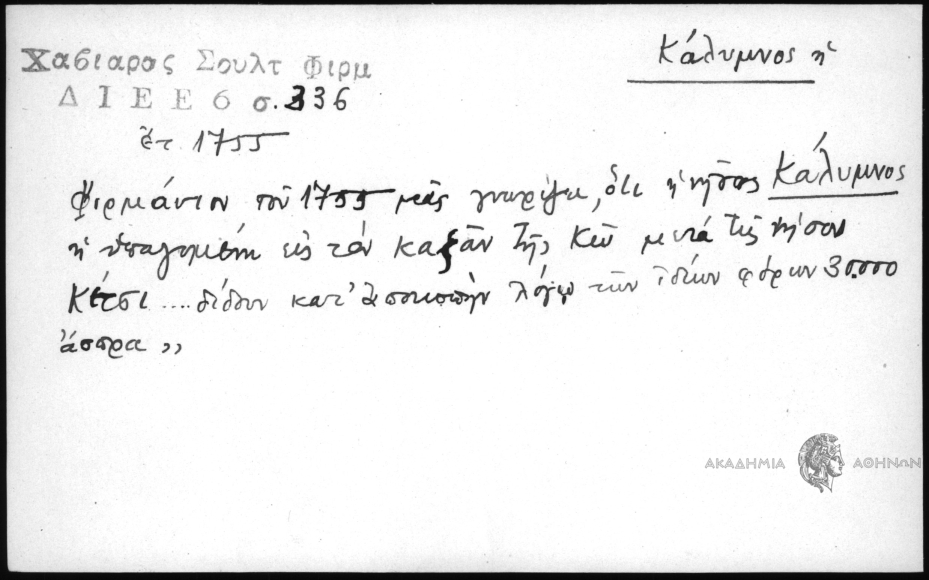 Κάλυμνος ἡ
Χαβιαρας Σουλτ Φιρμ
Δ Ι Ε Ε 6 σ. 336
ἔτ 1755
Φιρμάνιον τοῦ 1755 μᾶς γνωρίζει, ὅτι ἡ νῆσος Κάλυμνος
ἡ ὑπαγομένη εἰς τόν καζᾶν τῆς Κῶ μετά τῆς νήσου
Κέτσι .... δίδουν κατ' ἀποκοπήν λόγῳ τῶν ἰδίων φόρων 30.000
ἄσπρα ,,
ΑΚΑΔΗΜΙΑ ΑΘΗΝΩΝ